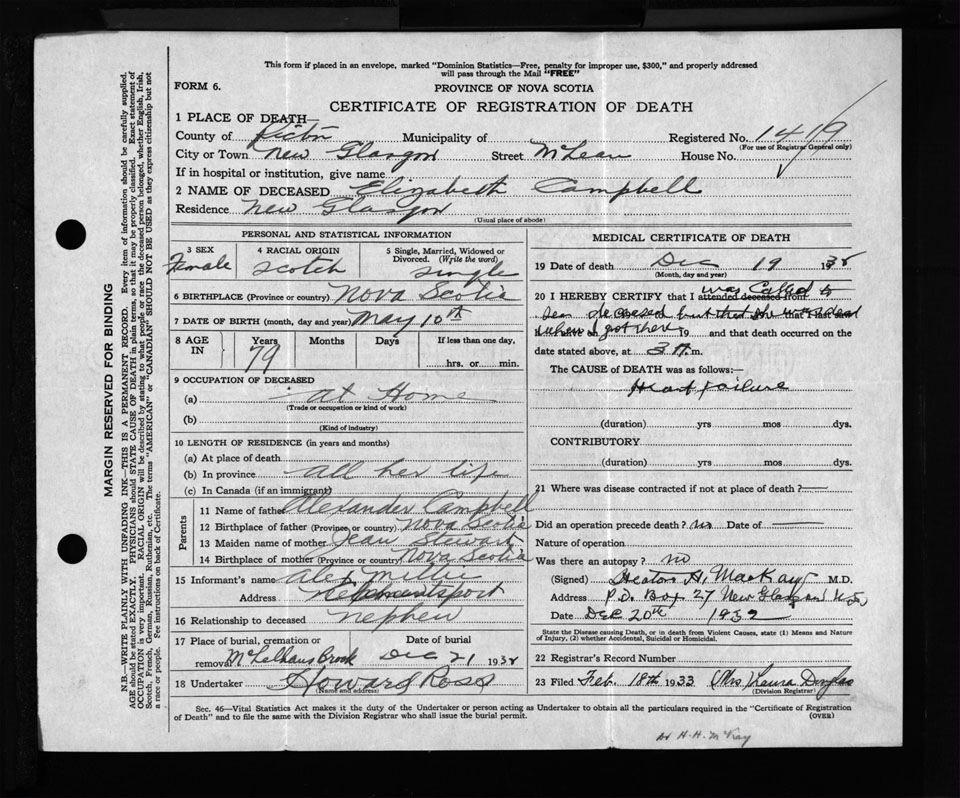 This form if placed in an envelope, marked "Dominion Statistics—Free, penalty for improper use, $300," and properly addressed
will pass through the Mail "FREE"
FORM 6.
PROVINCE OF NOVA SCOTIA
CERTIFICATE OF REGISTRATION OF DEATH
1 PLACE OF DEATH
County of Pictou Municipality of Registered No. 1419
(For use of Registrar General only)
City or Town New Glasgow Street McLean House No.
If in hospital or institution, give name
2 NAME OF DECEASED Elizabeth Campbell
Residence New Glasgow
(Usual place of abode)
PERSONAL AND STATISTICAL INFORMATION
3 SEX Female
4 RACIAL ORIGIN Scotch
5 Single, Married, Widowed or Divorced. (Write the word) Single
6 BIRTHPLACE (Province or country) Nova Scotia
7 DATE OF BIRTH (month, day and year) May 10th
8 AGE IN Years Months Days If less than one day,
79 hrs. or min.
9 OCCUPATION OF DECEASED
(a) at Home
(Trade or occupation or kind of work)
(b)
(Kind of industry)
10 LENGTH OF RESIDENCE (in years and months)
(a) At place of death
(b) In province all her life
(c) In Canada (if an immigrant)
Parents
11 Name of father Alexander Campbell
12 Birthplace of father (Province or country) Nova Scotia
13 Maiden name of mother Jean Stewart
14 Birthplace of mother (Province or country) Nova Scotia
15 Informant's name Alex
Address
16 Relationship to deceased nephew
17 Place of burial, cremation or removal Date of burial
McLellans Brook Dec 21 1932
18 Undertaker Howard Ross
(Name and address)
MEDICAL CERTIFICATE OF DEATH
19 Date of death Dec 19 1932
(Month, day and year)
20 I HEREBY CERTIFY that I attended deceased from was called to
see deceased but that she was dead
when I got there 19 and that death occurred on the
date stated above, at 3 m.
The CAUSE of DEATH was as follows:—
Heart failure
(duration) yrs mos dys.
CONTRIBUTORY
(duration) yrs mos dys.
21 Where was disease contracted if not at place of death? —
Did an operation precede death? no Date of —
Nature of operation
Was there an autopsy? no
(Signed) Hector A. MacKay M.D.
Address P.O. Box 27 New Glasgow N.S.
Date Dec 20th 1932
State the Disease causing Death, or in death from Violent Causes, state (1) Means and Nature of Injury, (2) whether Accidental, Suicidal or Homicidal.
22 Registrar's Record Number
23 Filed Feb. 18th 1933 Mrs Laura Douglas
(Division Registrar)
Sec. 46—Vital Statistics Act makes it the duty of the Undertaker or person acting as Undertaker to obtain all the particulars required in the "Certificate of Registration
of Death" and to file the same with the Division Registrar who shall issue the burial permit.
(OVER)
H. H. McKay
MARGIN RESERVED FOR BINDING
N.B.—WRITE PLAINLY WITH UNFADING INK—THIS IS A PERMANENT RECORD. Every item of information should be carefully supplied.
AGE should be stated EXACTLY. PHYSICIANS should STATE CAUSE OF DEATH in plain terms, so that it may be properly classified. Exact statement of
OCCUPATION is very important. RACIAL ORIGIN will be described by stating to what people or race the deceased person belonged, whether English, Irish,
Scotch, French, German, Russian, Ruthenian, etc. The terms "AMERICAN" or "CANADIAN" SHOULD NOT BE USED as they express citizenship but not
a race or people. Fee instructions on back of Certificate.